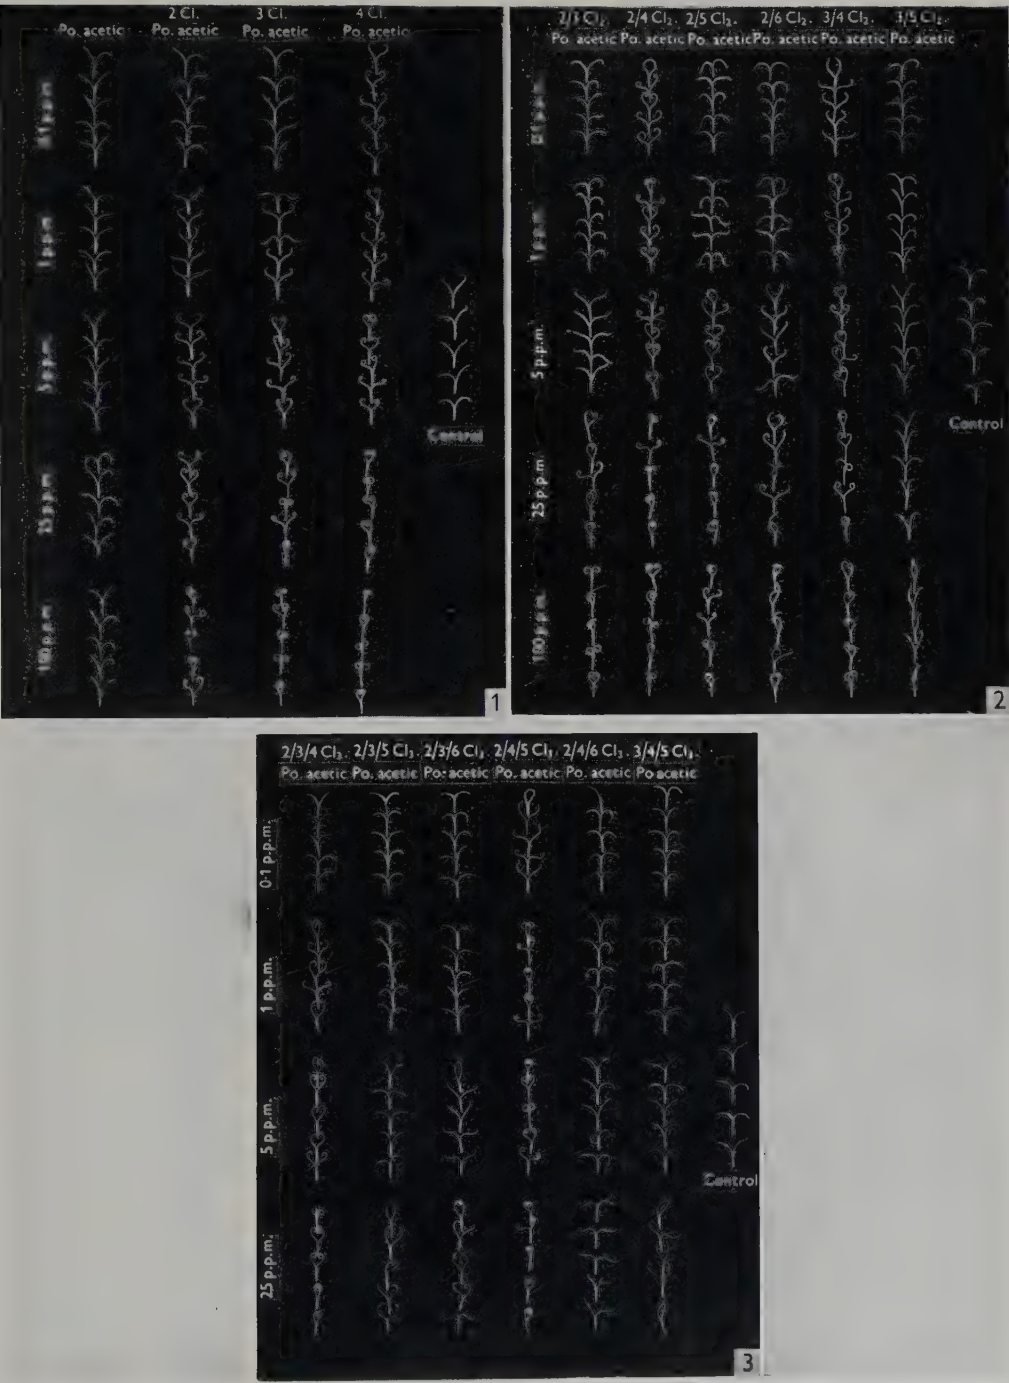 2 Cl. 3 Cl. 4 Cl.
Po. acetic Po. acetic Po. acetic Po. acetic
1 p.p.m.
5 p.p.m.
25 p.p.m.
100 p.p.m.
Control
1
2/3 Cl₂. 2/4 Cl₂. 2/5 Cl₂. 2/6 Cl₂. 3/4 Cl₂. 3/5 Cl₂.
Po. acetic Po. acetic Po. acetic Po. acetic Po. acetic Po. acetic
1 p.p.m.
5 p.p.m.
25 p.p.m.
100 p.p.m.
Control
2
2/3/4 Cl₃. 2/3/5 Cl₃. 2/3/6 Cl₃. 2/4/5 Cl₃. 2/4/6 Cl₃. 3/4/5 Cl₃.
Po. acetic Po. acetic Po. acetic Po. acetic Po. acetic Po acetic
0·1 p.p.m.
1 p.p.m.
5 p.p.m.
25 p.p.m.
Control
3